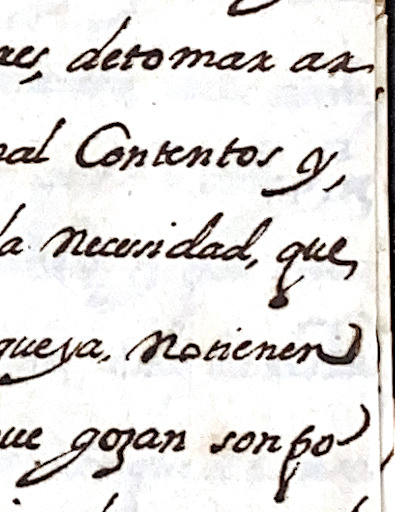 res, detomar ar
nal Contentos y,
la necesidad, que,
queya. Notienen
que gozan sonpo